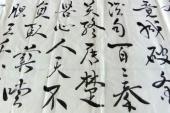 竟成破釜
沉舟百二秦
关终属楚
苦心人天不
负卧薪尝